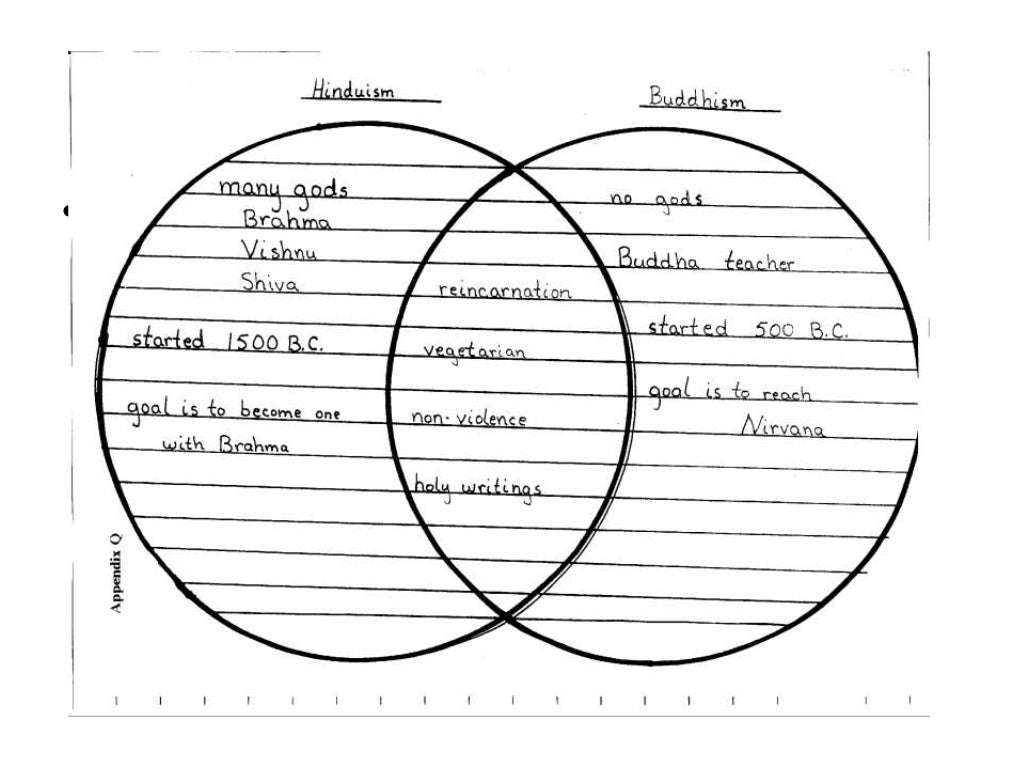 Hinduism
Buddhism
many gods
Brahma
Vishnu
Shiva
started 1500 B.C.
goal is to become one
with Brahma
reincarnation
vegetarian
non-violence
holy writings
no gods
Buddha teacher
started 500 B.C.
goal is to reach
Nirvana
Appendix Q